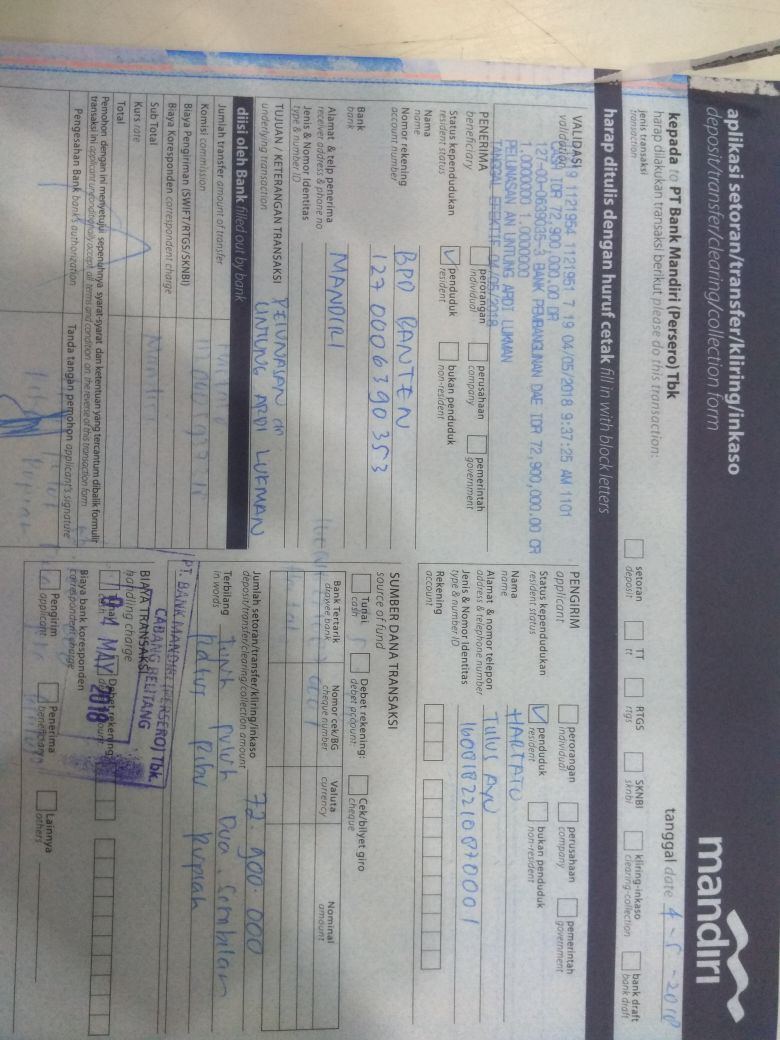 aplikasi setoran/transfer/kliring/inkaso
deposit/transfer/clearing/collection form
mandiri
kepada to PT Bank Mandiri (Persero) Tbk
harap dilakukan transaksi berikut please do this transaction:
tanggal date 4-5-2018
jenis transaksi
transaction
setoran
deposit
TT
tt
RTGS
rtgs
SKNBI
sknbi
kliring-inkaso
clearing-collection
bank draft
bank draft
harap ditulis dengan huruf cetak fill in with block letters
VALIDASI
validation
9 1121954 1121951 7 19 04/05/2018 9:37:25 AM 1101
CASH IDR 72,900,000.00 DR
127-00-0639035-3 BANK PEMBANGUNAN DAE IDR 72,900,000.00 CR
1.0000000 1.0000000
PELUNASAN AN UNTUNG ARDI LUKMAN
TANGGAL EFEKTIF 04/05/2018
PENERIMA
beneficiary
perorangan
individual
perusahaan
company
pemerintah
government
Status kependudukan
resident status
penduduk
resident
bukan penduduk
non-resident
Nama
name
BPD BANTEN
Nomor rekening
account number
1270006390353
Bank
bank
MANDIRI
Alamat & telp penerima
receiver address & phone no.
Jenis & Nomor Identitas
type & number ID
TUJUAN / KETERANGAN TRANSAKSI
underlying transaction
PELUNASAN
UNTUNG ARDI LUKMAN
diisi oleh Bank filled out by bank
Jumlah transfer amount of transfer
Komisi commission
Biaya Pengirman (SWIFT/RTGS/SKNBI)
Biaya Koresponden correspondent charge
Sub Total
Kurs rate
Total
Pemohon dengan ini menyetujui sepenuhnya syarat-syarat dan ketentuan yang tercantum dibalik formulir
transaksi ini applicant unconditionally accept all terms and condition on the reverse of this transaction form
Pengesahan Bank bank's authorization
Tanda tangan pemohon applicant's signature
PENGIRIM
applicant
perorangan
individual
perusahaan
company
pemerintah
government
Status kependudukan
resident status
penduduk
resident
bukan penduduk
non-resident
Nama
name
HARTATO
Alamat & nomor telepon
address & telephone number
TULUS AYU
Jenis & Nomor Identitas
type & number ID
Rekening
account
SUMBER DANA TRANSAKSI
source of fund
Tunai
cash
Debet rekening:
debet account
Cek/bilyet giro
cheque
Bank Tertarik
drawee bank
Nomor cek/BG
cheque number
Valuta
currency
Nominal
amount
Jumlah setoran/transfer/kliring/inkaso
deposit/transfer/clearing/collection amount
72.900.000
Terbilang
in words
Tujuh puluh Dua Sembilan
Ratus Ribu Rupiah
BIAYA TRANSAKSI
handling charge
Debet rekening
PT. BANK MANDIRI (PERSERO) Tbk.
CABANG BELITANG
04 MAY 2018
Biaya bank koresponden
correspondent charge
Pengirim
applicant
Penerima
beneficiary
Lainnya
others